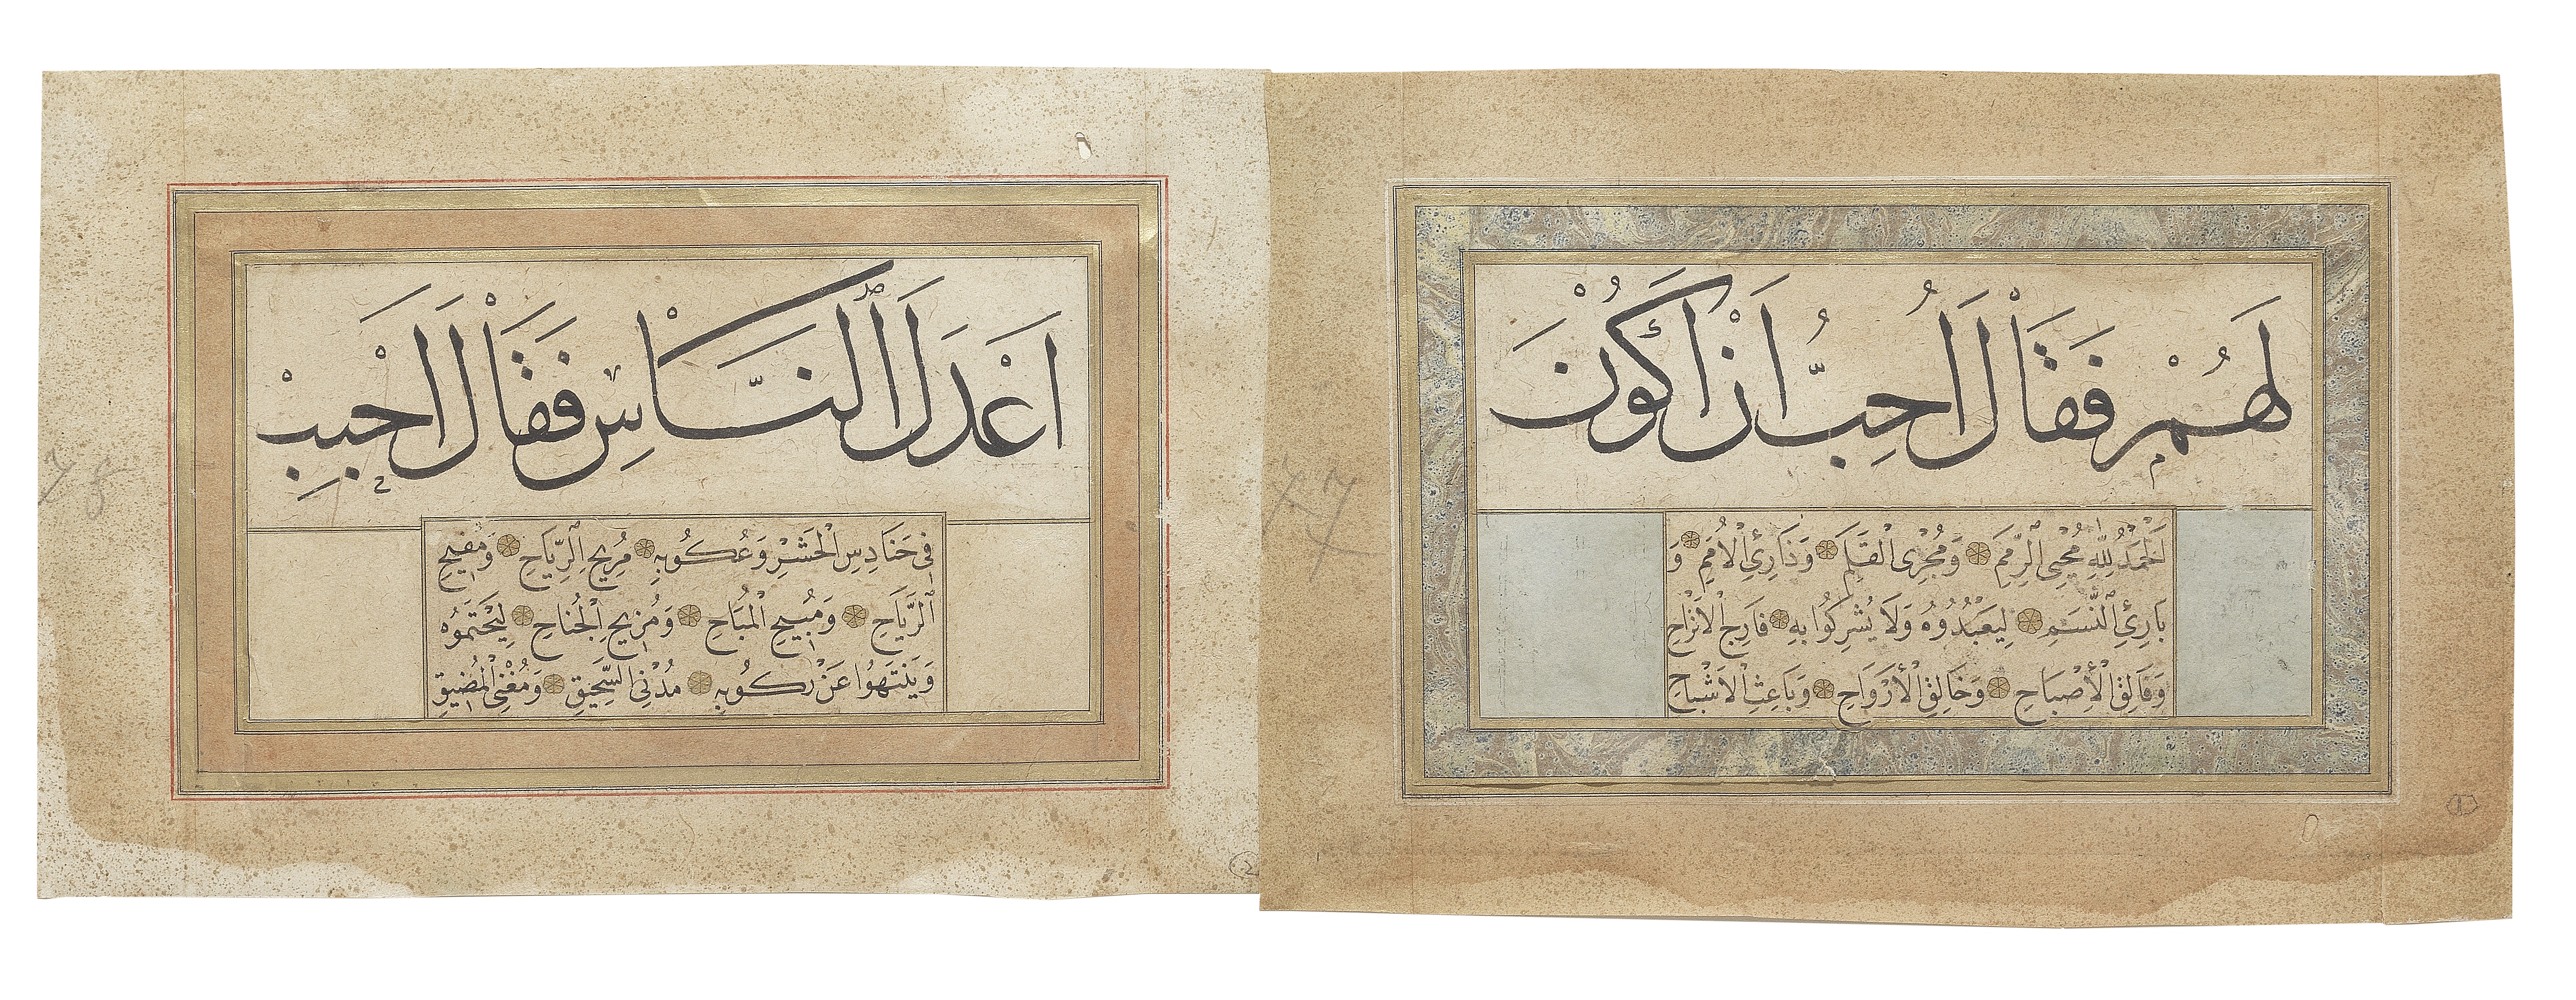 لَهُمْ فَقَالَ اُحِبُّ اَنْ اَكُونَ
اَلْحَمْدُ لِلّٰهِ مُحْيِي الرِّمَمِ وَمُجْرِى الْقَلَمِ وَذَارِئِ الْاُمَمِ وَ
بَارِئِ النَّسَمِ لِيَعْبُدُوهُ وَلَا يُشْرِكُوا بِهِ فَارِجِ الْاَتْرَاحِ
وَفَالِقِ الْاَصْبَاحِ وَخَالِقِ الْاَرْوَاحِ وَبَاعِثِ الْاَشْبَاحِ
77
اَعْدَلَ النَّاسِ فَقَالَ اَحْبِبْ
فِى حَنَادِسِ الْحَشْرِ وَعُكُوبِهِ مُرِيحِ الرِّيَاحِ وَمُفِيحِ
الرَّيَاحِ وَمُبِيحِ الْمُبَاحِ وَمُزِيحِ الْجُنَاحِ لِيَحْتَمُوهُ
وَيَنْتَهُوا عَنْ رُكُوبِهِ مُدْنِى السَّحِيقِ وَمُغْنِى الْمُضِيقِ
78